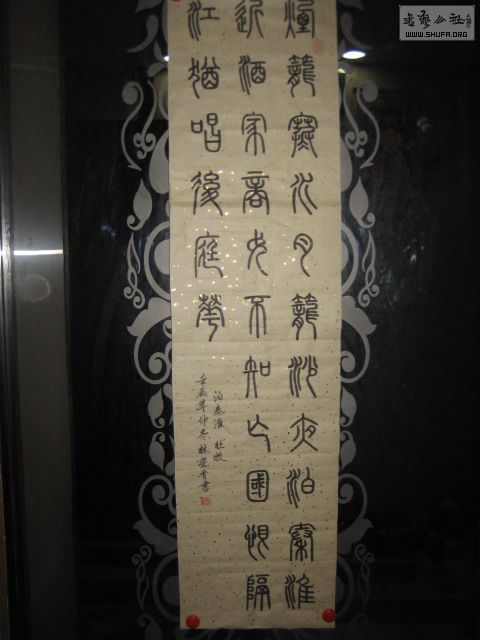 書藝公社
WWW.SHUFA.ORG
煙籠寒水月籠沙夜泊秦淮
近酒家商女不知亡國恨隔
江猶唱後庭華
泊秦淮 杜牧
壬辰年仲冬林書